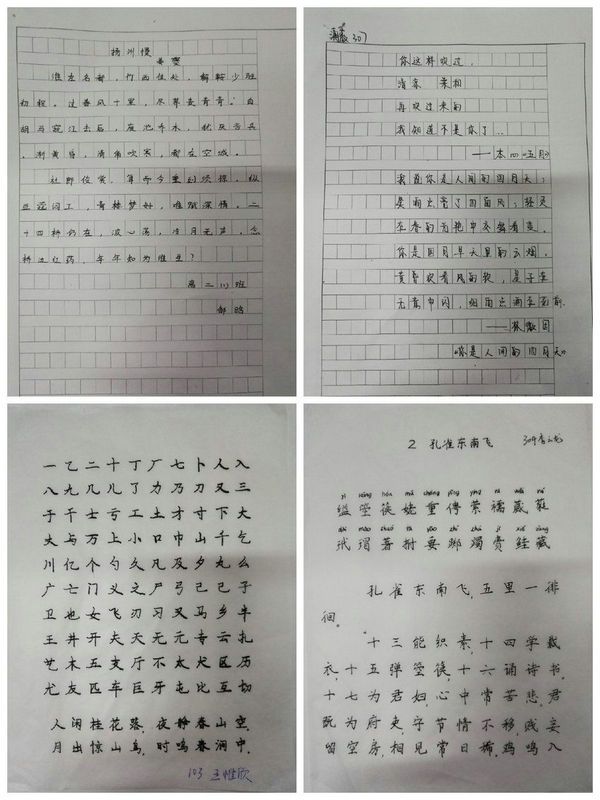 扬州慢
姜夔
淮左名都，竹西佳处，解鞍少驻
初程。过春风十里，尽荠麦青青。自
胡马窥江去后，废池乔木，犹厌言兵
。渐黄昏，清角吹寒，都在空城。
杜郎俊赏，算而今重到须惊。纵
豆蔻词工，青楼梦好，难赋深情。二
十四桥仍在，波心荡，冷月无声。念
桥边红药，年年知为谁生？
高二（1）班
307
你这样吹过，
清凉 柔和
再吹过来的
我知道不是你了..
——木心《五月》
我说你是人间的四月天；
笑响点亮了四面风；轻灵
在春的光艳中交舞着变。
你是四月早天里的云烟，
黄昏吹着风的软，星子在
无意中闪，细雨点洒在花前。
——林徽因
《你是人间的四月天》
一乙二十丁厂七卜人入
八九几儿了力乃刀又三
于干士亏工土才寸下大
丈与万上小口巾山千乞
川亿个勺久凡及夕丸么
广亡门义之尸弓己已子
卫也女飞刃习叉马乡丰
王井开夫天无元专云扎
艺木五支厅不太犬区历
尤友匹车巨牙屯比互切
人闲桂花落，夜静春山空，
月出惊山鸟，时鸣春涧中。
103 王惟欣
2 孔雀东南飞 309
箜篌
玳瑁
孔雀东南飞，五里一徘
徊。
十三能织素，十四学裁
衣，十五弹箜篌，十六诵诗书，
十七为君妇，心中常苦悲，君
既为府吏，守节情不移，贱妾
留空房，相见常日稀，鸡鸣入